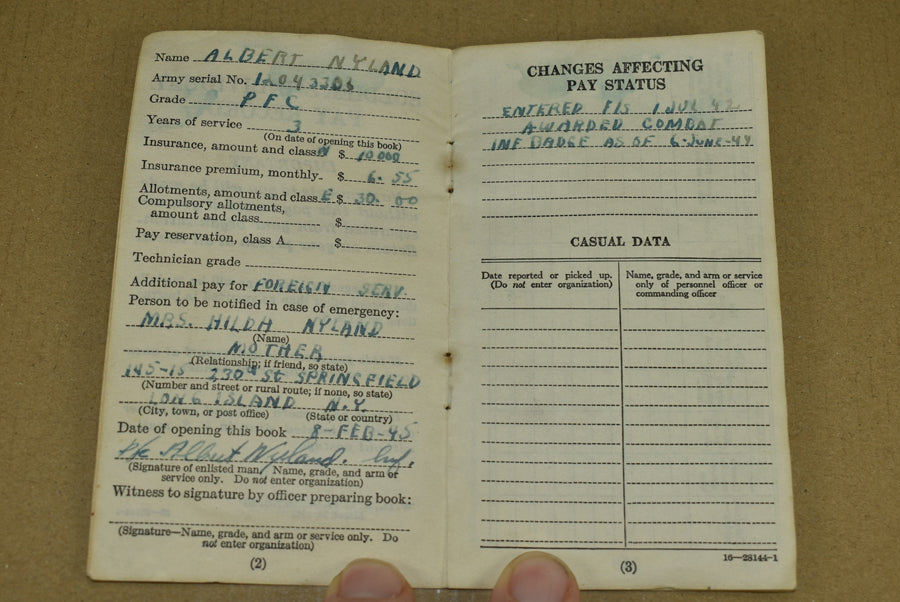 Name ALBERT NYLAND
Army serial No. 12043303
Grade PFC
Years of service 3
(On date of opening this book)
Insurance, amount and class N $ 10 000
Insurance premium, monthly $ 6.55
Allotments, amount and class E $ 30.00
Compulsory allotments,
amount and class $
Pay reservation, class A $
Technician grade
Additional pay for FOREIGN SERV.
Person to be notified in case of emergency:
MRS. HILDA NYLAND
(Name)
MOTHER
(Relationship; if friend, so state)
145-15 230th St SPRINGFIELD
(Number and street or rural route; if none, so state)
LONG ISLAND N.Y.
(City, town, or post office) (State or country)
Date of opening this book 8-FEB-45
Pfc Albert Nyland. Inf.
(Signature of enlisted man, Name, grade, and arm or
service only. Do not enter organization)
Witness to signature by officer preparing book:
(Signature—Name, grade, and arm or service only. Do
not enter organization)
(2)
CHANGES AFFECTING
PAY STATUS
ENTERED F/S 1 JUL 42
AWARDED COMBAT
INF BADGE AS OF 6-JUNE-44
CASUAL DATA
Date reported or picked up.
(Do not enter organization)
Name, grade, and arm or service
only of personnel officer or
commanding officer
16—28144-1
(3)